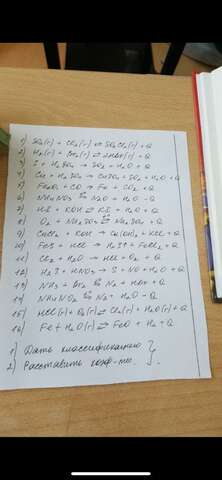 1) SO₂(г) + Cl₂(г) ⇄ SO₂Cl₂(г) + Q
2) H₂(г) + (г) ⇄ (г) + Q
3) S + H₂SO₄ → SO₂ + H₂O + Q
4) Cu + H₂SO₄ → CuSO₄ + SO₂ + H₂O + Q
5) + CO → Fe + CO₂ + Q
6) → N₂O + H₂O - Q
7) + KOH ⇄ + H₂O + Q
8) O₂ + Na₂SO₃ → Na₂SO₄ + Q
9) + KOH → + KCl + Q
10) FeS + HCl → H₂S↑ + FeCl₂ + Q
11) Cl₂ + H₂O → HCl + O₂ + Q
12) H₂S + HNO₃ → S + NO + H₂O + Q
13) NH₃ + Br₂ → N₂ + HBr + Q
14) NH₄NO₂ → N₂ + H₂O - Q
15) HCl(г) + O₂(г) ⇄ Cl₂(г) + H₂O(г) + Q
16) Fe + H₂O(г) ⇄ FeO + H₂ + Q
1) Дать классификацию
2) Расставить коэф-ты.